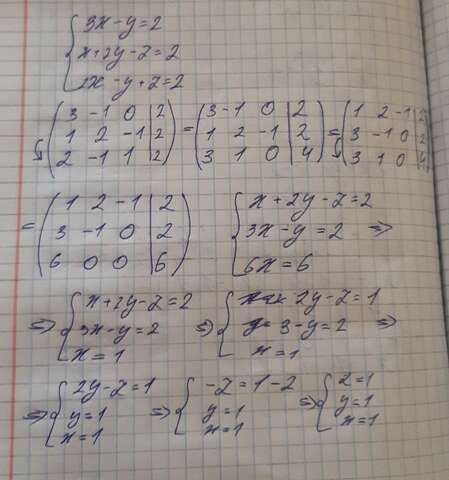 { 3x - y = 2
x + 2y - z = 2
2x - y + z = 2
( 3 -1 0 | 2
1 2 -1 | 2
2 -1 1 | 2 ) = ( 3 -1 0 | 2
1 2 -1 | 2
3 1 0 | 4 ) = ( 1 2 -1 | 2
3 -1 0 | 2
3 1 0 | 4
= ( 1 2 -1 | 2
3 -1 0 | 2
6 0 0 | 6 )
{ x + 2y - z = 2
3x - y = 2 =>
6x = 6
=> { x + 2y - z = 2
3x - y = 2
x = 1
=> { 2y - z = 1
3 - y = 2 =>
x = 1
=> { 2y - z = 1
y = 1
x = 1
=> { -z = 1 - 2
y = 1
x = 1
=> { z = 1
y = 1
x = 1